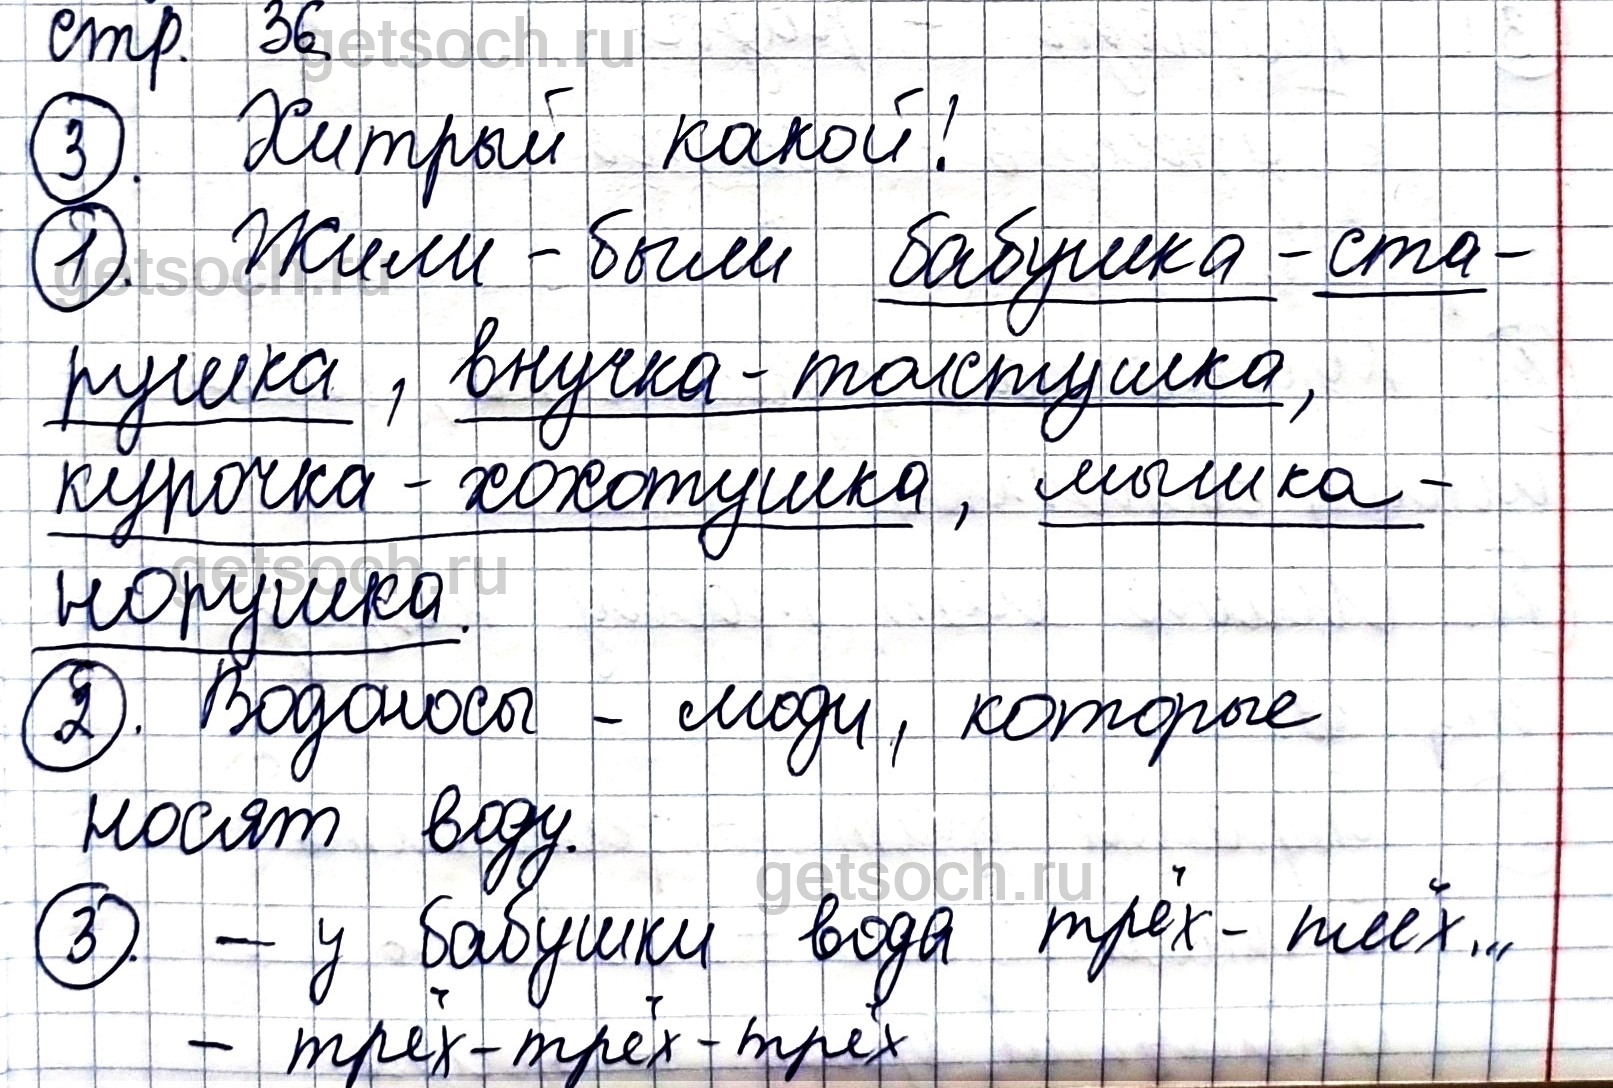 стр. 36
getsoch.ru
3. Хитрый какой!
1. Жили-были бабушка-ста-
getsoch.ru
рушка, внучка-толстушка,
курочка-хохотушка, мышка-
getsoch.ru
норушка.
2. Водоносы - люди, которые
носят воду.
getsoch.ru
3. - у бабушки вода трёх-плёх...
- трёх-трёх-трёх